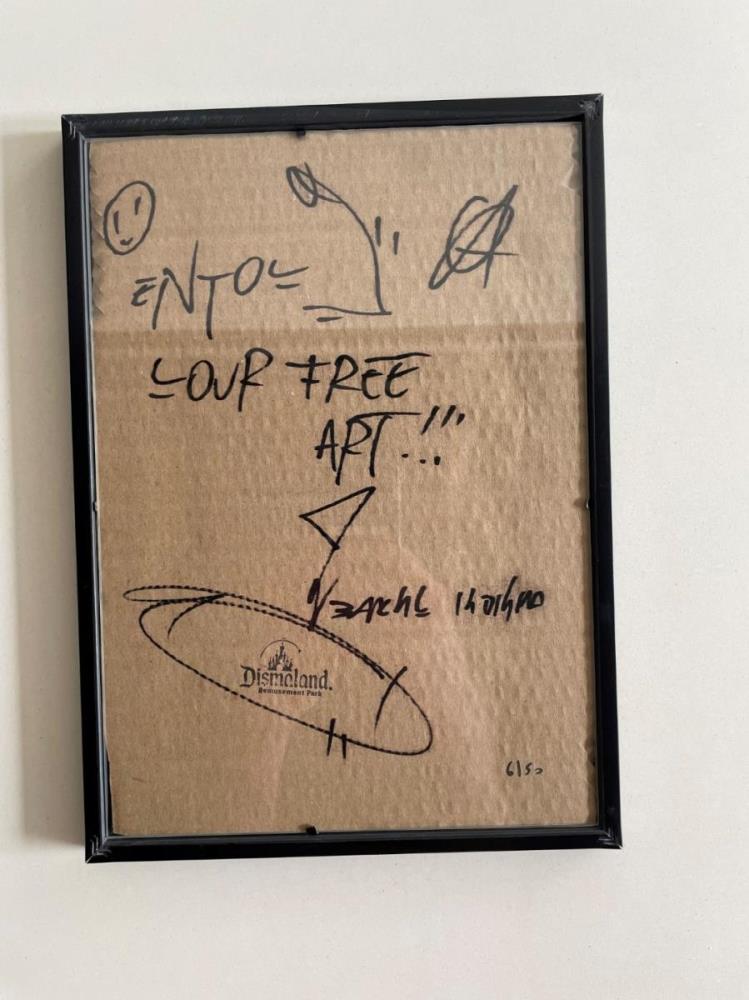 ENJOY
YOUR FREE
ART!!!
Dismaland.
Bemusement Park
6/50